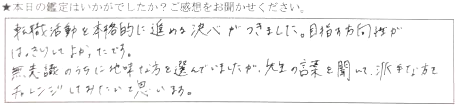 ★本日の鑑定はいかがでしたか？ご感想をお聞かせください。
転職活動を本格的に進める決心がつきました。目指す方向性が
はっきりしてよかったです。
無意識のうちに地味な方を選んでいましたが、先生の言葉を聞いて、派手な方を
チャレンジしてみたいと思います。